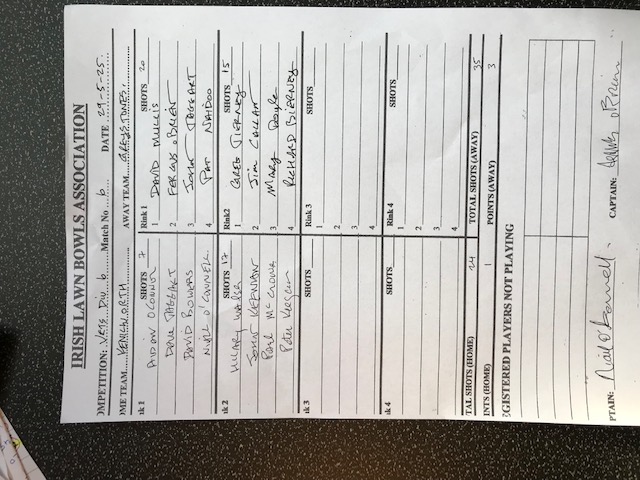 IRISH LAWN BOWLS ASSOCIATION
OMPETITION: Vets Div 6 Match No 6 DATE 29-5-25
OME TEAM KENILWORTH AWAY TEAM GREYSTONES
nk 1 SHOTS 7 Rink 1 SHOTS 20
AIDAN O'CONNOR 1 DAVID MULLIS
DAVE TAGGART 2 FERGUS O'BRIEN
DAVID BOWERS 3 JOHN TAGGART
NIALL O'CONNELL 4 PAT NAIDOO
nk 2 SHOTS 17 Rink2 SHOTS 15
HILARY WALSH 1 TIERNEY
JOHN KEENAN 2 JIM CALLAN
3 MARY Doyle
Peter 4 RICHARD BIERNEY
nk 3 SHOTS Rink 3 SHOTS
1
2
3
4
nk 4 SHOTS Rink 4 SHOTS
1
2
3
4
TAL SHOTS (HOME) 24 TOTAL SHOTS (AWAY) 35
INTS (HOME) 1 POINTS (AWAY) 3
EGISTERED PLAYERS NOT PLAYING
PTAIN: Niall O'Connell CAPTAIN: O'Brien